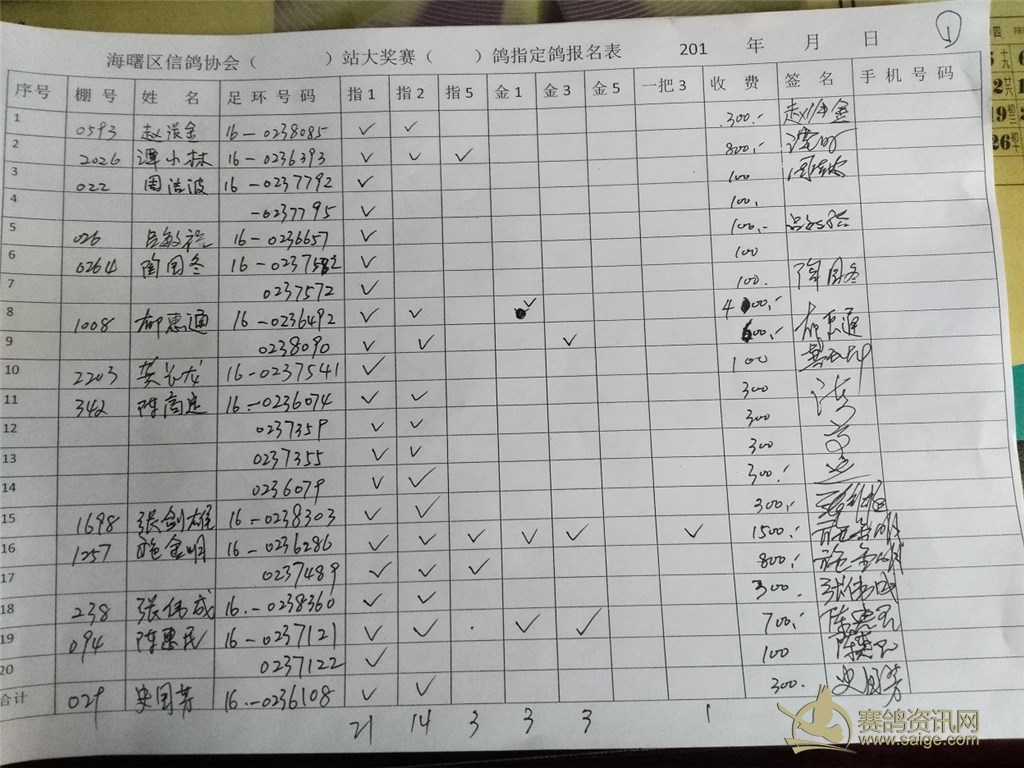 ①
海曙区信鸽协会（ ）站大奖赛（ ）鸽指定鸽报名表 201 年 月 日
序号 棚号 姓名 足环号码 指1 指2 指5 金1 金3 金5 一把3 收费 签名 手机号码
1 0593 赵 金 16-0238085 ✓ ✓ 300.-
2 2026 谭小林 16-0236393 ✓ ✓ ✓ 800.-
3 022 周洁波 16-0237792 ✓ 100 周洁波
4 -0237795 ✓ 100.
5 026 吕敏 16-0236657 ✓ 100.- 吕敏
6 0264 陶国冬 16-0237582 ✓ 100
7 0237572 ✓ 100. 陶国冬
8 1008 郁惠通 16-0236492 ✓ ✓ ✓ 400.-
9 0238090 ✓ ✓ ✓ 600.- 郁惠通
10 2203 龙 16-0237541 ✓ 100
11 342 陈高达 16-0236074 ✓ ✓ 300
12 0237359 ✓ ✓ 300
13 0237355 ✓ ✓ 300
14 0236079 ✓ ✓ 300.
15 1698 张剑雄 16-0238303 ✓ ✓ 300.-
16 1257 施金明 16-0236286 ✓ ✓ ✓ ✓ ✓ ✓ 1500.- 施金明
17 0237489 ✓ ✓ ✓ 800.- 施金明
18 238 张伟成 16.-0238360 ✓ ✓ 300. 张伟成
19 094 陈惠民 16-0237121 ✓ ✓ ✓ ✓ 700.- 陈惠民
20 0237122 ✓ 100 陈惠民
合计 029 史国芳 16.-0236108 ✓ ✓ 300. 史国芳
21 14 3 3 3 1
赛鸽资讯网
www.saige.com